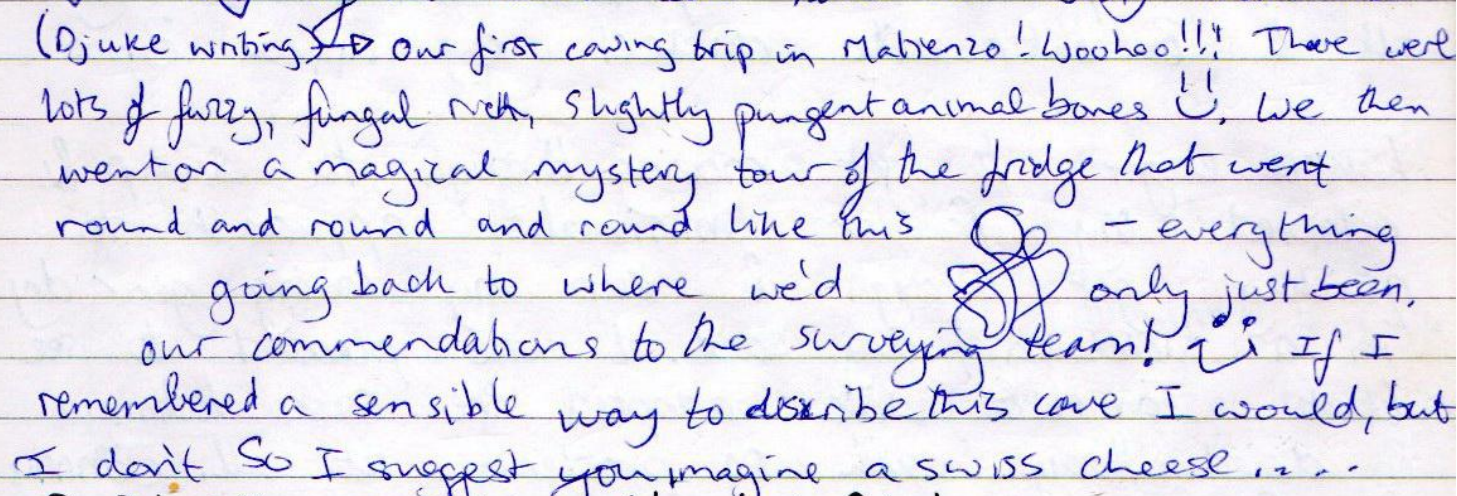 (Djuke writing) → our first caving trip in Matienzo! Woohoo!!! There were
lots of fuzzy, fungal rich, slightly pungent animal bones Ü. We then
went on a magical mystery tour of the fridge that went
round and round and round like this – everything
going back to where we'd only just been.
our commendations to the surveying team! If I
remembered a sensible way to describe this cave I would, but
I don't so I suggest you imagine a swiss cheese....